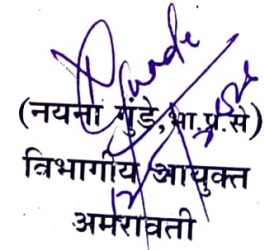 (नयना गुंडे,भा.प्र.से)
विभागीय आयुक्त
अमरावती